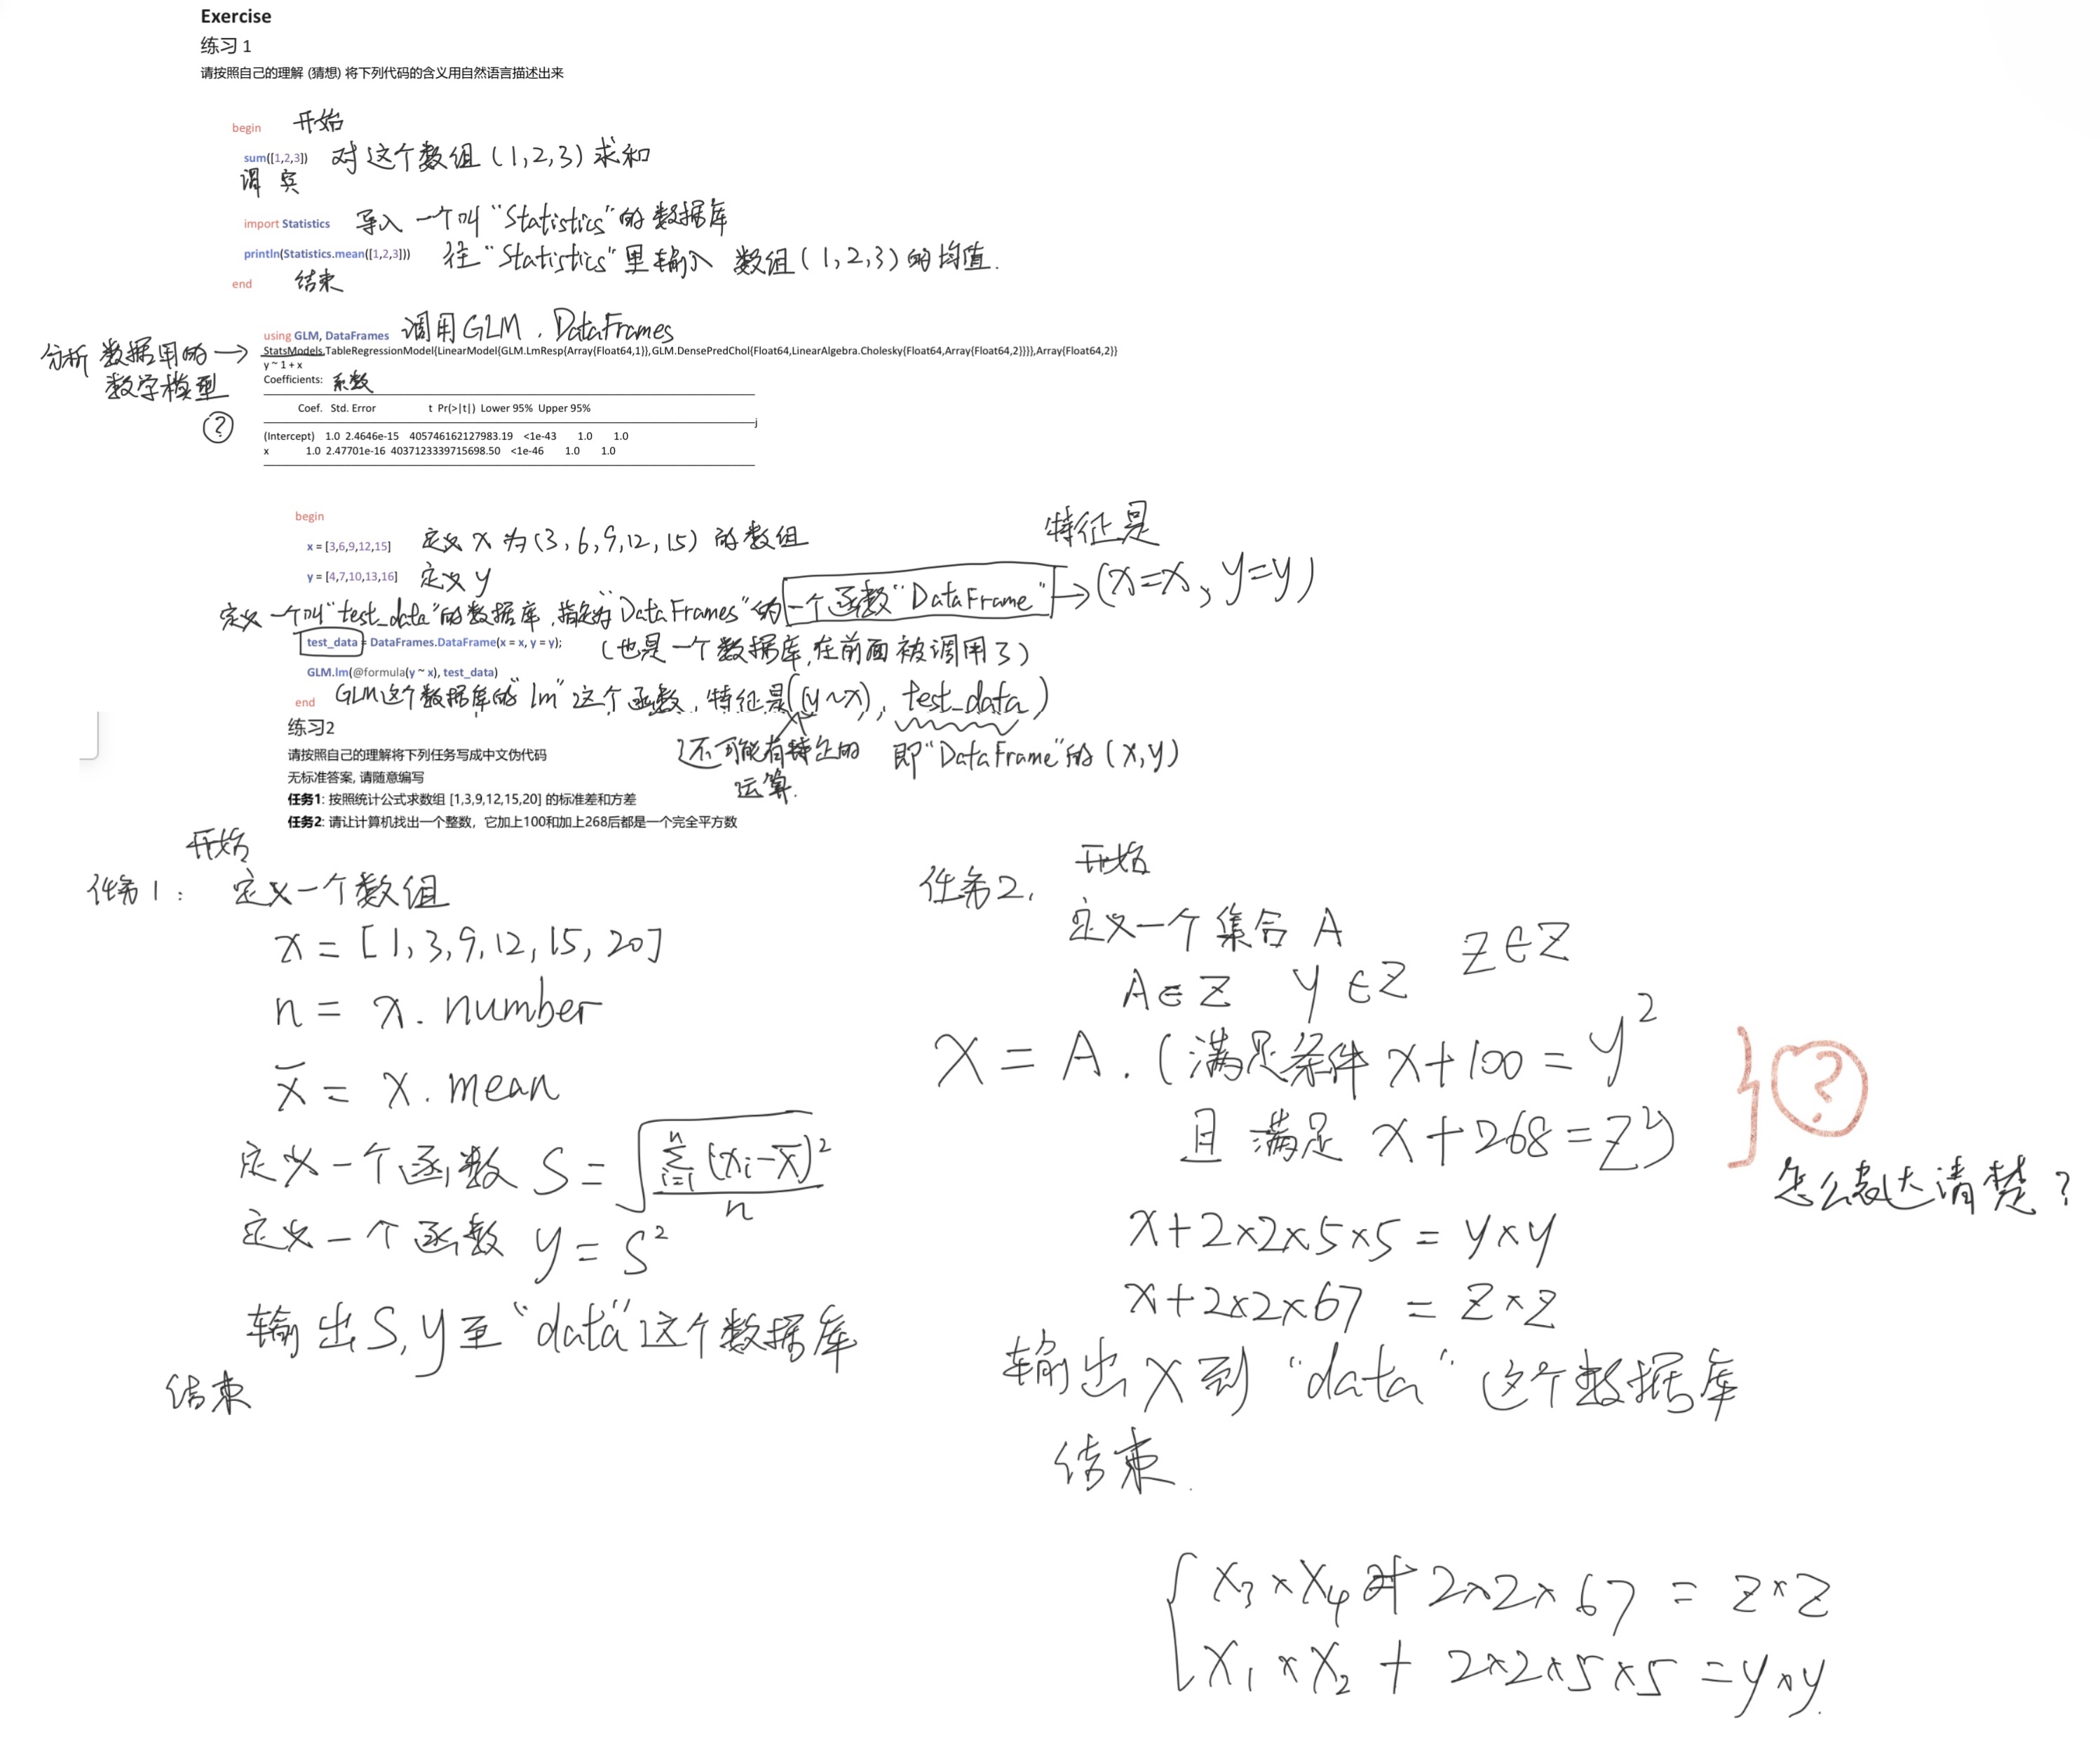 Exercise
练习 1
请按照自己的理解 (猜想) 将下列代码的含义用自然语言描述出来
begin 开始
sum([1,2,3]) 对这个数组(1,2,3)求和
谓 宾
import Statistics 导入一个叫"Statistics"的数据库
println(Statistics.mean([1,2,3])) 往"Statistics"里输入 数组(1,2,3)的均值.
end 结束
using GLM, DataFrames 调用GLM. DataFrames
分析数据用的→
数学模型
?
StatsModels.TableRegressionModel{LinearModel{GLM.LmResp{Array{Float64,1}},GLM.DensePredChol{Float64,LinearAlgebra.Cholesky{Float64,Array{Float64,2}}}},Array{Float64,2}}
y ~ 1 + x
Coefficients: 系数
Coef. Std. Error t Pr(>|t|) Lower 95% Upper 95%
(Intercept) 1.0 2.4646e-15 405746162127983.19 <1e-43 1.0 1.0
x 1.0 2.47701e-16 4037123339715698.50 <1e-46 1.0 1.0
begin
x = [3,6,9,12,15] 定义x为(3,6,9,12,15)的数组
y = [4,7,10,13,16] 定义y
特征是
定义一个叫"test_data"的数据库,指定为"DataFrames"的一个函数"DataFrame"→(x=x, y=y)
test_data = DataFrames.DataFrame(x = x, y = y); (也是一个数据库,在前面被调用了)
GLM.lm(@formula(y ~ x), test_data)
end GLM这个数据库的"lm"这个函数,特征是((y~x), test_data)
还可能有特定的
运算.
即"DataFrame"的(x,y)
练习2
请按照自己的理解将下列任务写成中文伪代码
无标准答案, 请随意编写
任务1: 按照统计公式求数组 [1,3,9,12,15,20] 的标准差和方差
任务2: 请让计算机找出一个整数，它加上100和加上268后都是一个完全平方数
开始
任务1: 定义一个数组
x = [1,3,9,12,15,20]
n = x.number
x̄ = x.mean
定义一个函数 S = √(∑ᵢ₌₁ⁿ(xᵢ-x̄)²/n)
定义一个函数 y = S²
输出S,y至"data"这个数据库
结束
开始
任务2.
定义一个集合A
A∈Z y∈Z z∈Z
x = A.(满足条件 x+100=y²
且满足 x+268=z²)
?
怎么表达清楚?
x+2×2×5×5=y×y
x+2×2×67=z×z
输出x到"data"这个数据库
结束.
x₃×x₄+2×2×67=z×z
x₁×x₂+2×2×5×5=y×y.